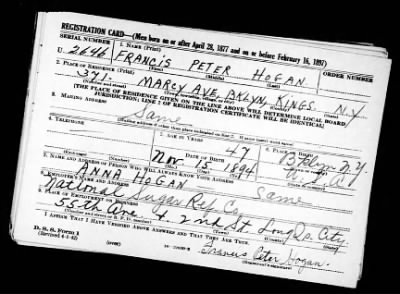 REGISTRATION CARD—(Men born on or after April 28, 1877 and on or before February 16, 1897)
SERIAL NUMBER 1. NAME (Print) ORDER NUMBER
U 2646 FRANCIS PETER HOGAN
(First) (Middle) (Last)
2. PLACE OF RESIDENCE (Print)
371 MARCY AVE, BKLYN, KINGS N.Y.
(THE PLACE OF RESIDENCE GIVEN ON THE LINE ABOVE WILL DETERMINE LOCAL BOARD
JURISDICTION; LINE 2 OF REGISTRATION CERTIFICATE WILL BE IDENTICAL)
3. MAILING ADDRESS
Same
4. TELEPHONE 5. AGE IN YEARS 6. PLACE OF BIRTH
47 Bklyn N.Y.
DATE OF BIRTH
Nov. 15 1894 U.S.A.
7. NAME AND ADDRESS OF PERSON WHO WILL ALWAYS KNOW YOUR ADDRESS
ANNA HOGAN Same
8. EMPLOYER'S NAME AND ADDRESS
National Sugar Ref. Co.
9. PLACE OF EMPLOYMENT OR BUSINESS
55th Ave & 2nd St. Long Is. City
I AFFIRM THAT I HAVE VERIFIED ABOVE ANSWERS AND THAT THEY ARE TRUE.
D. S. S. Form 1
(Revised 4-1-42) (over) Francis Peter Hogan.